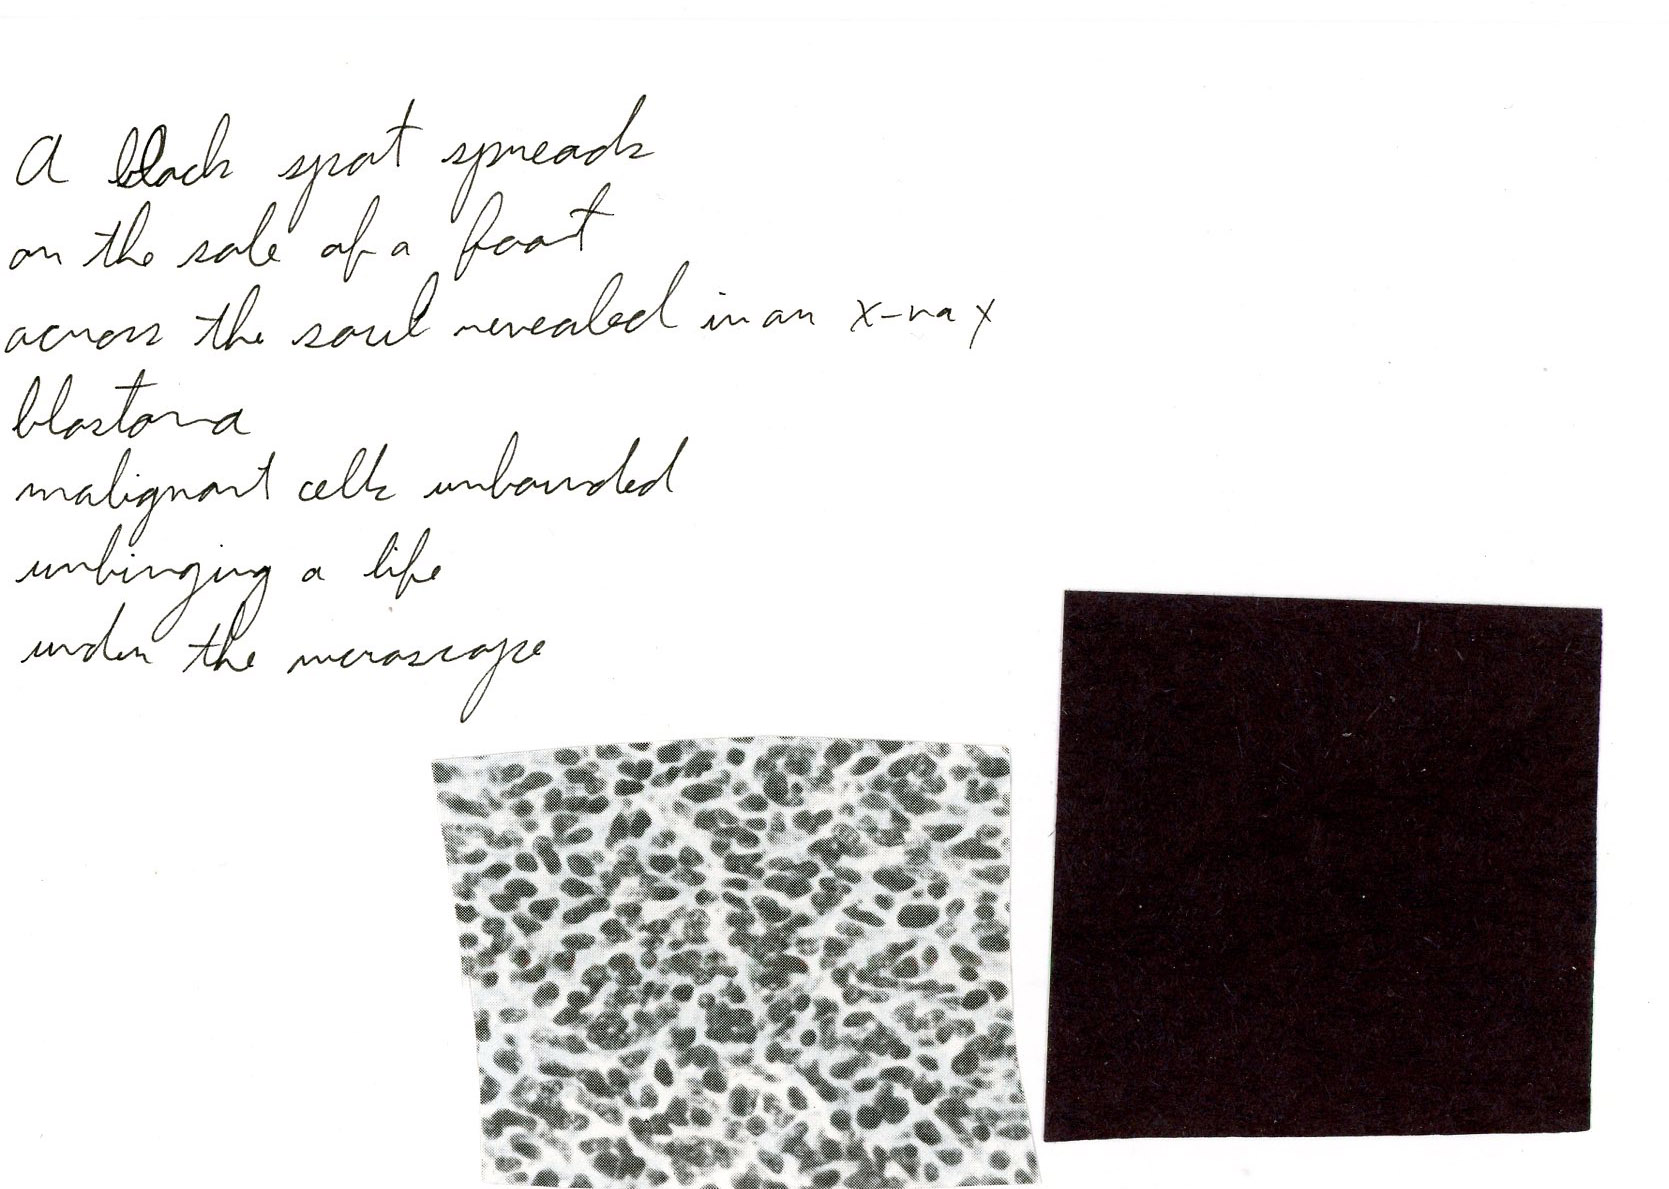 A black spot spreads
on the sole of a foot
across the soul revealed in an x-ray
blastoma
malignant cells unbounded
unhinging a life
under the microscope